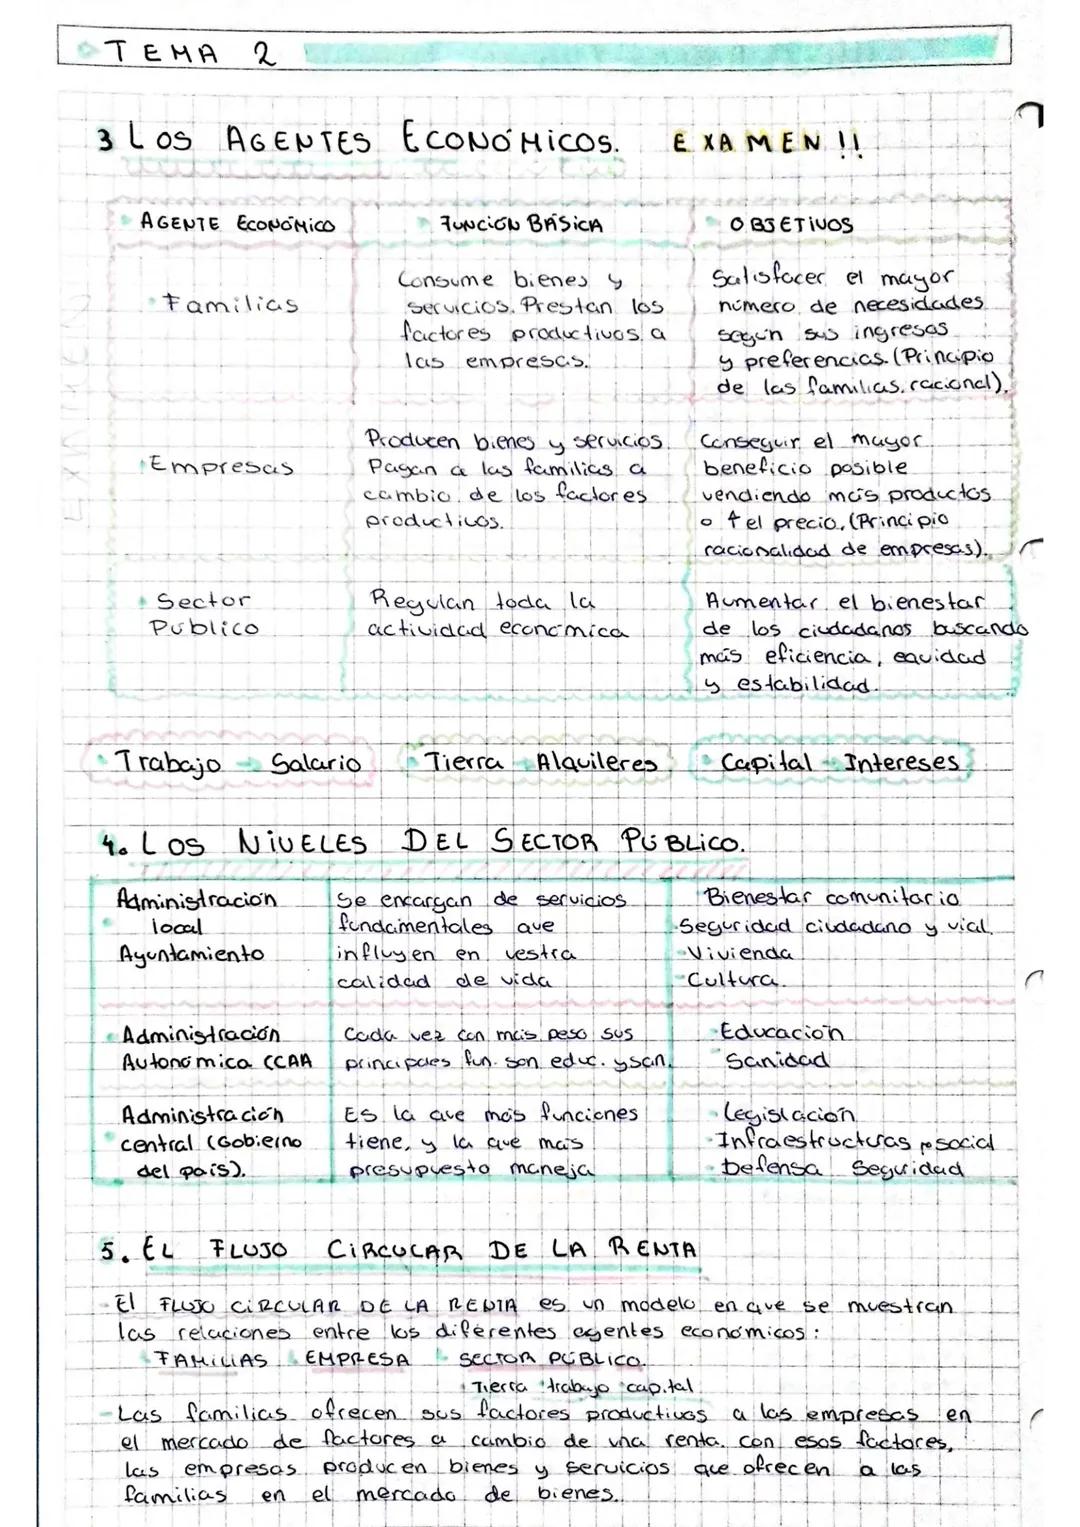 TEMA 2
3 LOS AGENTES ECONÓMICOS. EXAMEN!!
AGENTE ECONÓMICO
FUNCIÓN BÁSICA
OBJETIVOS
Familias
Consume bienes y
servicios. Prestan los
factores productivos a
las empresas.
Satisfacer el mayor
número de necesidades
según sus ingresos
y preferencias. (Principio
de las familias. racional).
Empresas
Producen bienes y servicios.
Pagan a las familias a
cambio de los factores
productivos.
Conseguir el mayor
beneficio posible
vendiendo más productos
o ↑ el precio. (Principio
racionalidad de empresas).
Sector
Público
Regulan toda la
actividad económica
Aumentar el bienestar
de los ciudadanos buscando
más eficiencia, equidad
y estabilidad.
Trabajo → Salario
Tierra → Alquileres
Capital → Intereses
4. LOS NIVELES DEL SECTOR PÚBLICO.
Administración
local
Ayuntamiento
Se encargan de servicios
fundamentales que
influyen en vestra
calidad de vida
Bienestar comunitario
-Seguridad ciudadano y vial.
-Vivienda
-Cultura.
Administración
Autonómica CCAA
Cada vez con más peso sus
principales fun. son educ. y san.
-Educación
Sanidad
Administración
central (Gobierno
del país).
Es la que más funciones
tiene, y la que más
presupuesto maneja
-Legislación
-Infraestructuras social
-Defensa Seguridad
5. EL FLUJO CIRCULAR DE LA RENTA
-El FLUJO CIRCULAR DE LA RENTA es un modelo en que se muestran
las relaciones entre los diferentes agentes económicos:
FAMILIAS EMPRESA SECTOR PÚBLICO.
Tierra trabajo capital
-Las familias ofrecen sus factores productivos a las empresas en
el mercado de factores a cambio de una renta. con esos factores,
las empresas producen bienes y servicios que ofrecen a las
familias en el mercado de bienes.